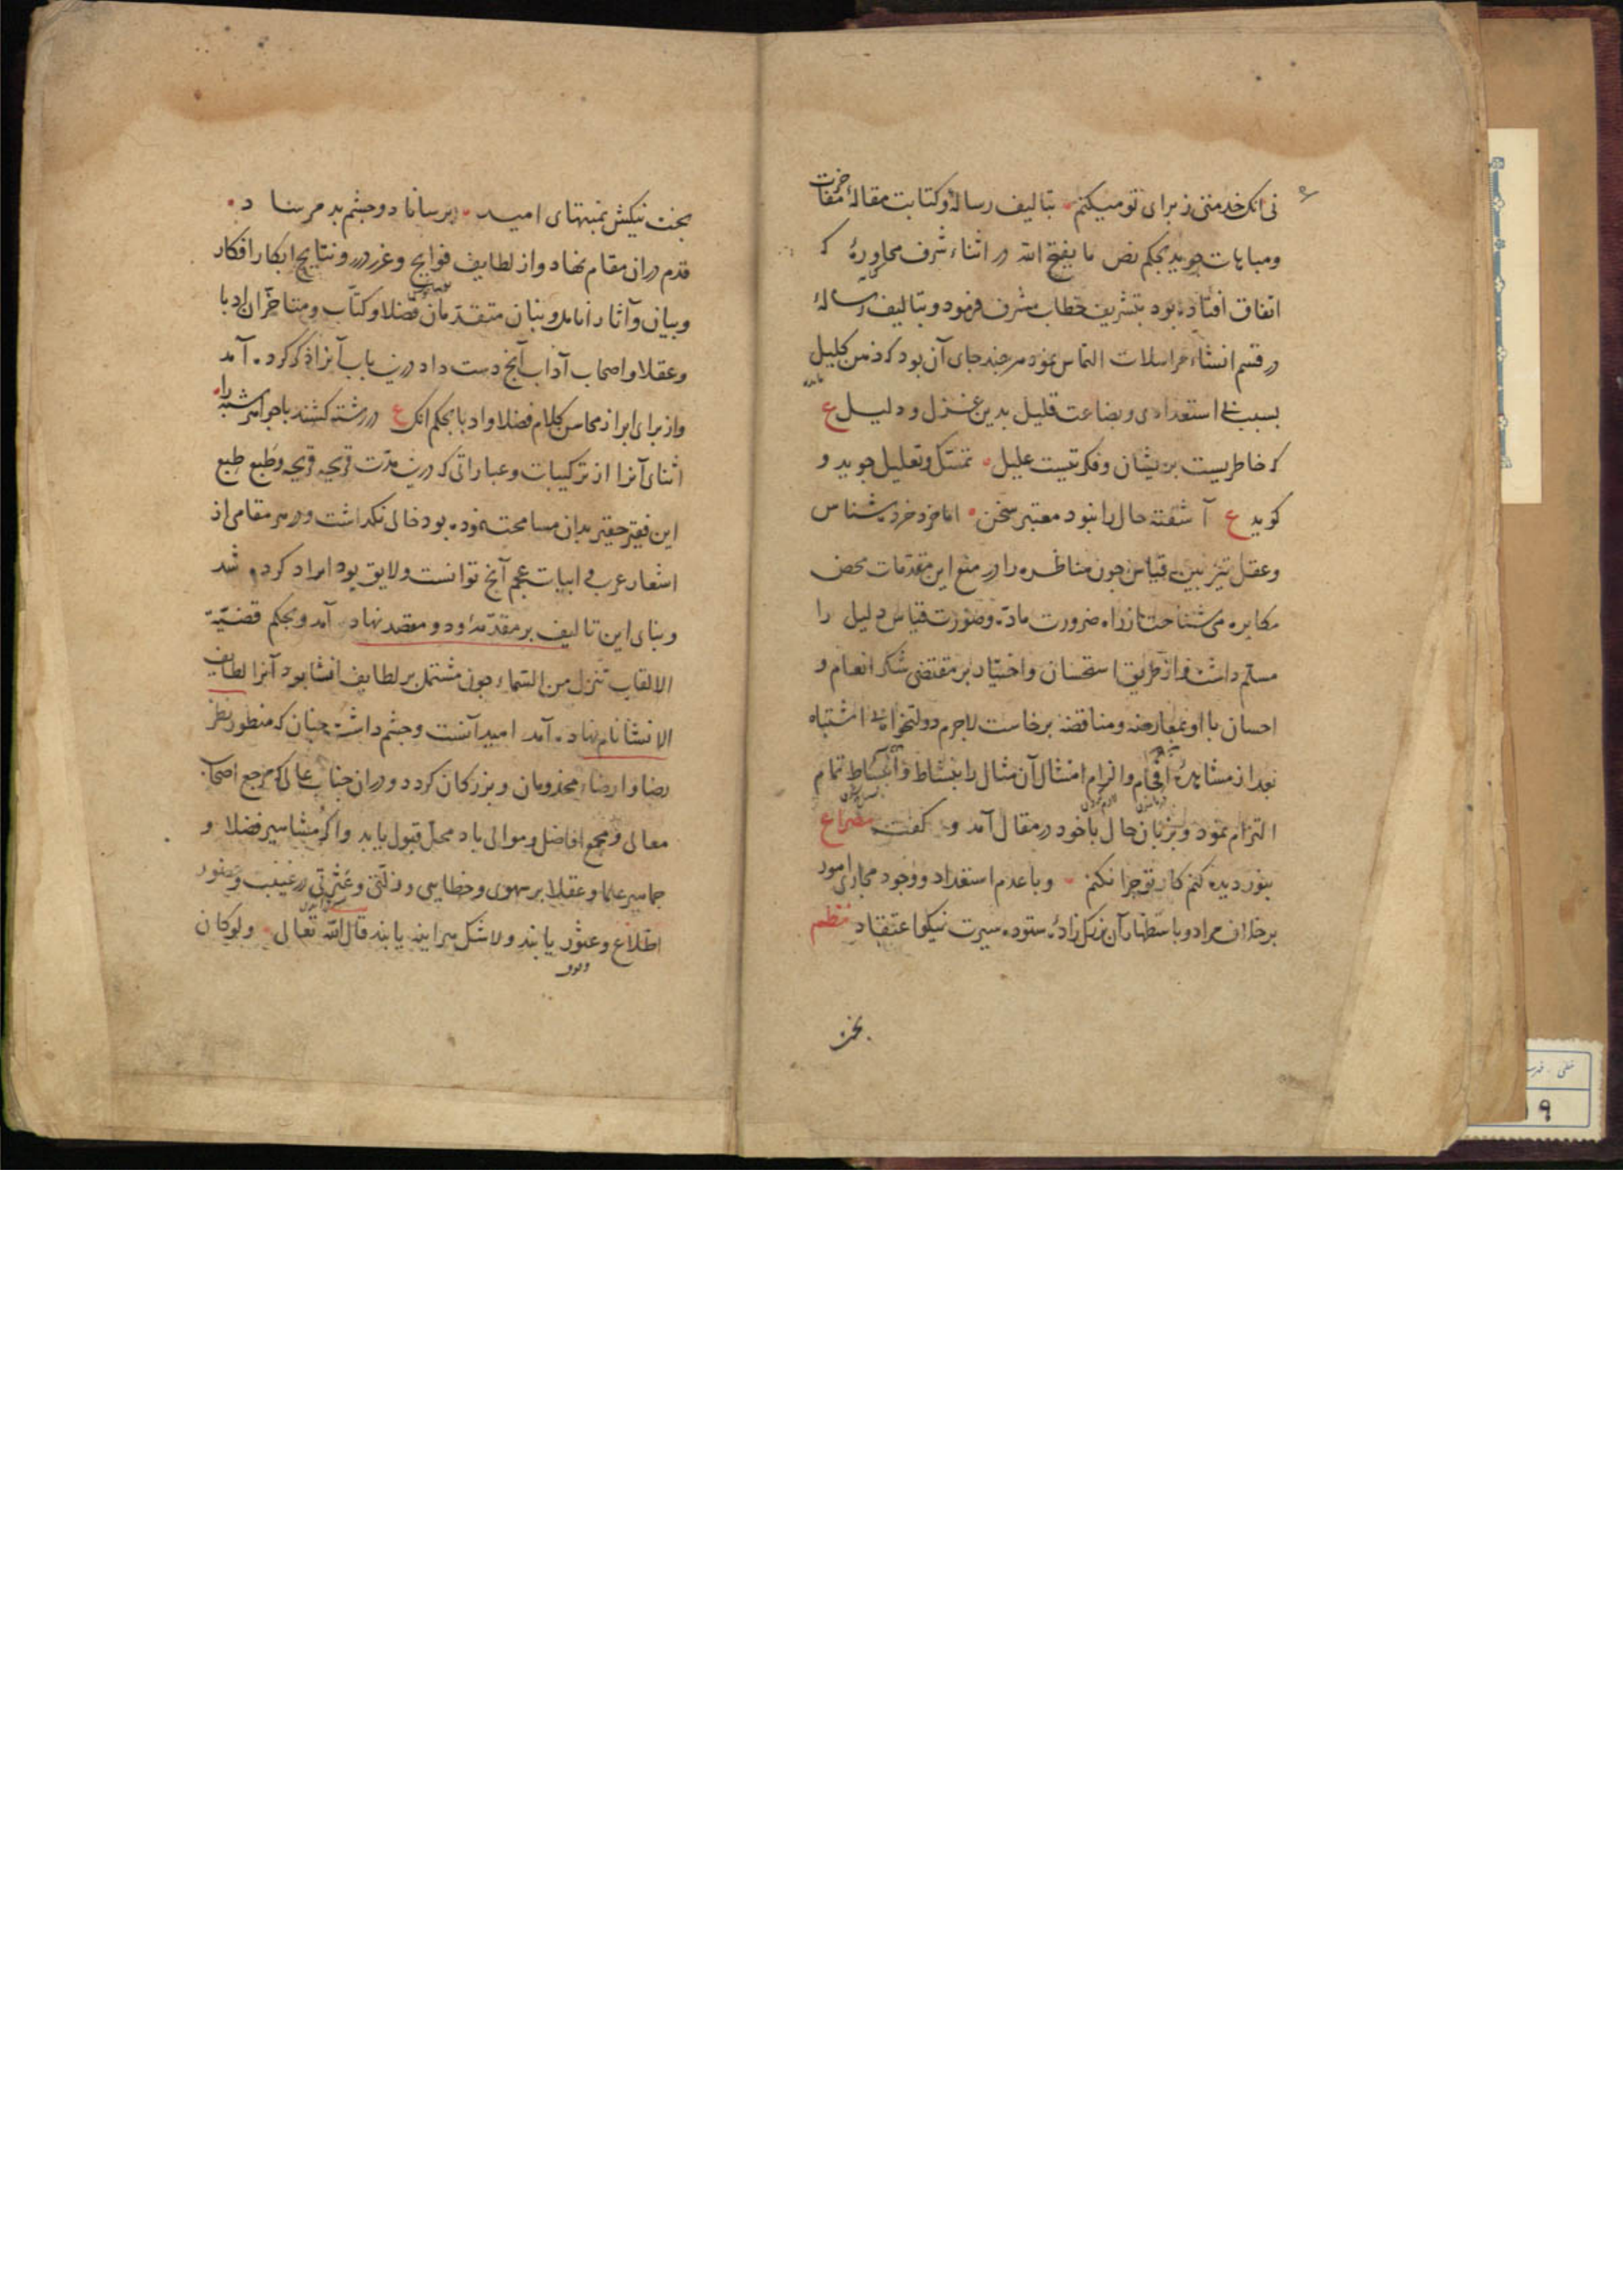 نی انک خدمتی ز برای تو میکنم بتالیف رساله و کتابت مقاله مفاخرت
ومباهات جوید بحکم نص ما یفتح الله در اثناء شرف محاورهٔ که
اتفاق افتاده بود بتشریف خطاب مشرف فرمود و بتالیف رسالهٔ
در قسم انشاء مراسلات التماس نمود هر چند جای آن بود که ذهن کلیل
بسبب بی استعدادی و بضاعت قلیل بدین غزل و دلیل ع
که خاطریست پریشان و فکرتیست علیل تمسک و تعلیل جوید و
کوید ع آشفته حال را نبود معتبر سخن اما خرد خرده شناس
وعقل تیزبین بی قیاس چون مناظره را در منع این مقدمات محض
مکابره می شناخت از راه ضرورت ماده وصورت قیاس دلیل را
مسلم داشت و از طریق استحسان واختیار بر مقتضی شکر انعام و
احسان با او بمعارضه ومناقضه برخاست لاجرم دولتخواه بی اشتباه
بعد از مشاهدهٔ افحام والزام امتثال آن مثال را بنشاط و انبساط تمام
التزام نمود و بزبان حال با خود در مقال آمد و کفت مصراع
بنور دیده کنم کار تو چرا نکنم وبا عدم استعداد و وجود مجاری امور
برخلاف مراد و باستظهار آن بزرک زادهٔ ستوده سیرت نیکو اعتقاد نظم
بخت
بخت نیکش بمنتهای امید برساناد و چشم بد مرساد
قدم دران مقام نهاد و از لطایف فوایح وغرر درر و نتایج ابکار افکار
وبیان وآثار انامل و بنان متقدمان فضلا و کتاب ومتاخران ادبا
وعقلا و اصحاب آداب آنچ دست داد درین باب آنرا ذکر کرد آمد
واز برای ابراز محاسن کلام فضلا و ادبا بحکم انک ع در رشته کشند با جواهر شبه را
اثنای آنرا از ترکیبات وعباراتی که درین مدت قریحه قریحه وطبع طبع
این فقیر حقیر بدان مسامحت نموده بود خالی نکذاشت ودر هر مقامی از
اشعار عرب و ابیات عجم آنچ توانست ولایق بود ایراد کرده شد
وبنای این تالیف بر مقدمه و دو مقصد نهاد آمد و بحکم قضیّه
الالقاب تنزل من السماء چون مشتمل بر لطایف انشا بود آنرا لطایف
الانشا نام نهاد آمد امید آنست و چشم داشت چنان که منظور نظر
رضا وارضاء مخدومان و بزرکان کردد و دران جناب عالی که مرجع اصحاب
معالی و مجمع افاضل و موالی باد محل قبول یابد واکر مشاهیر فضلا و
جماهیر علما وعقلا بر سهوی و خطایی و زلتی وعثرتی در غیبت و حضور
اطلاع وعثور یابند ولا شک هر آینه یابند قال الله تعالی ولو کان
وقوف